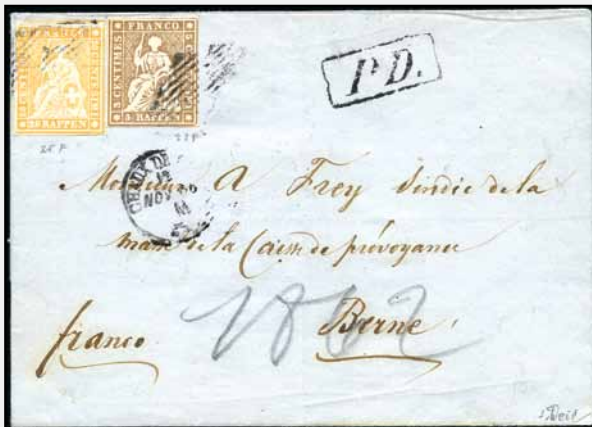 FRANCO
5 CENTIMES
5 RAPPEN
RAPPEN
P.D.
CHAUX DE
12
NOV
M
Monsieur A Frey Sindic de la
masse de la Caisse de prévoyance
franco Berne
1862